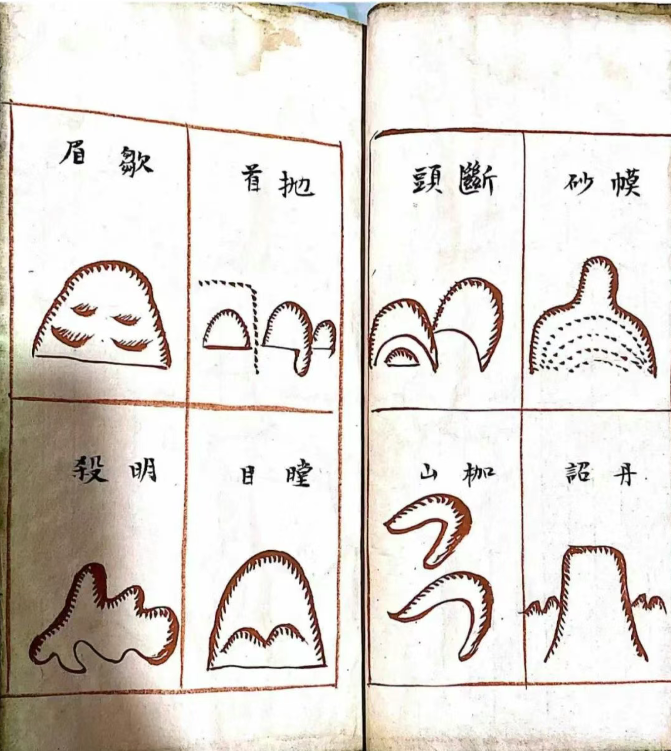 幙砂
斷頭
丹詔
枷山
抛首
皺眉
瞠目
明殺